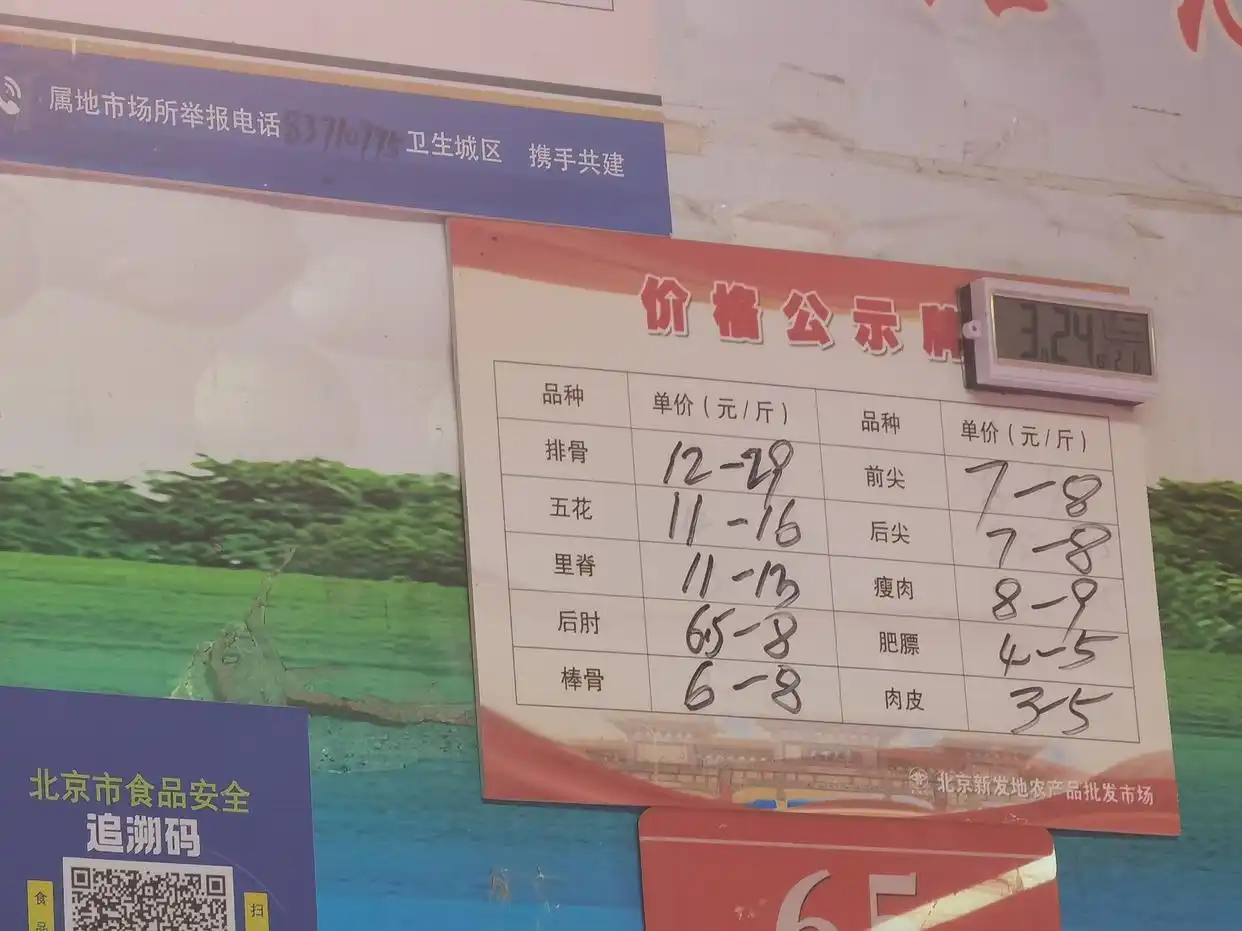 属地市场所举报电话83710775卫生城区 携手共建
价格公示牌
3月24日
品种 单价(元/斤) 品种 单价(元/斤)
排骨 12-29 前尖 7-8
五花 11-16 后尖 7-8
里脊 11-13 瘦肉 8-9
后肘 6.5-8 肥膘 4-5
棒骨 6-8 肉皮 3-5
北京新发地农产品批发市场
北京市食品安全
追溯码
食品
扫
65